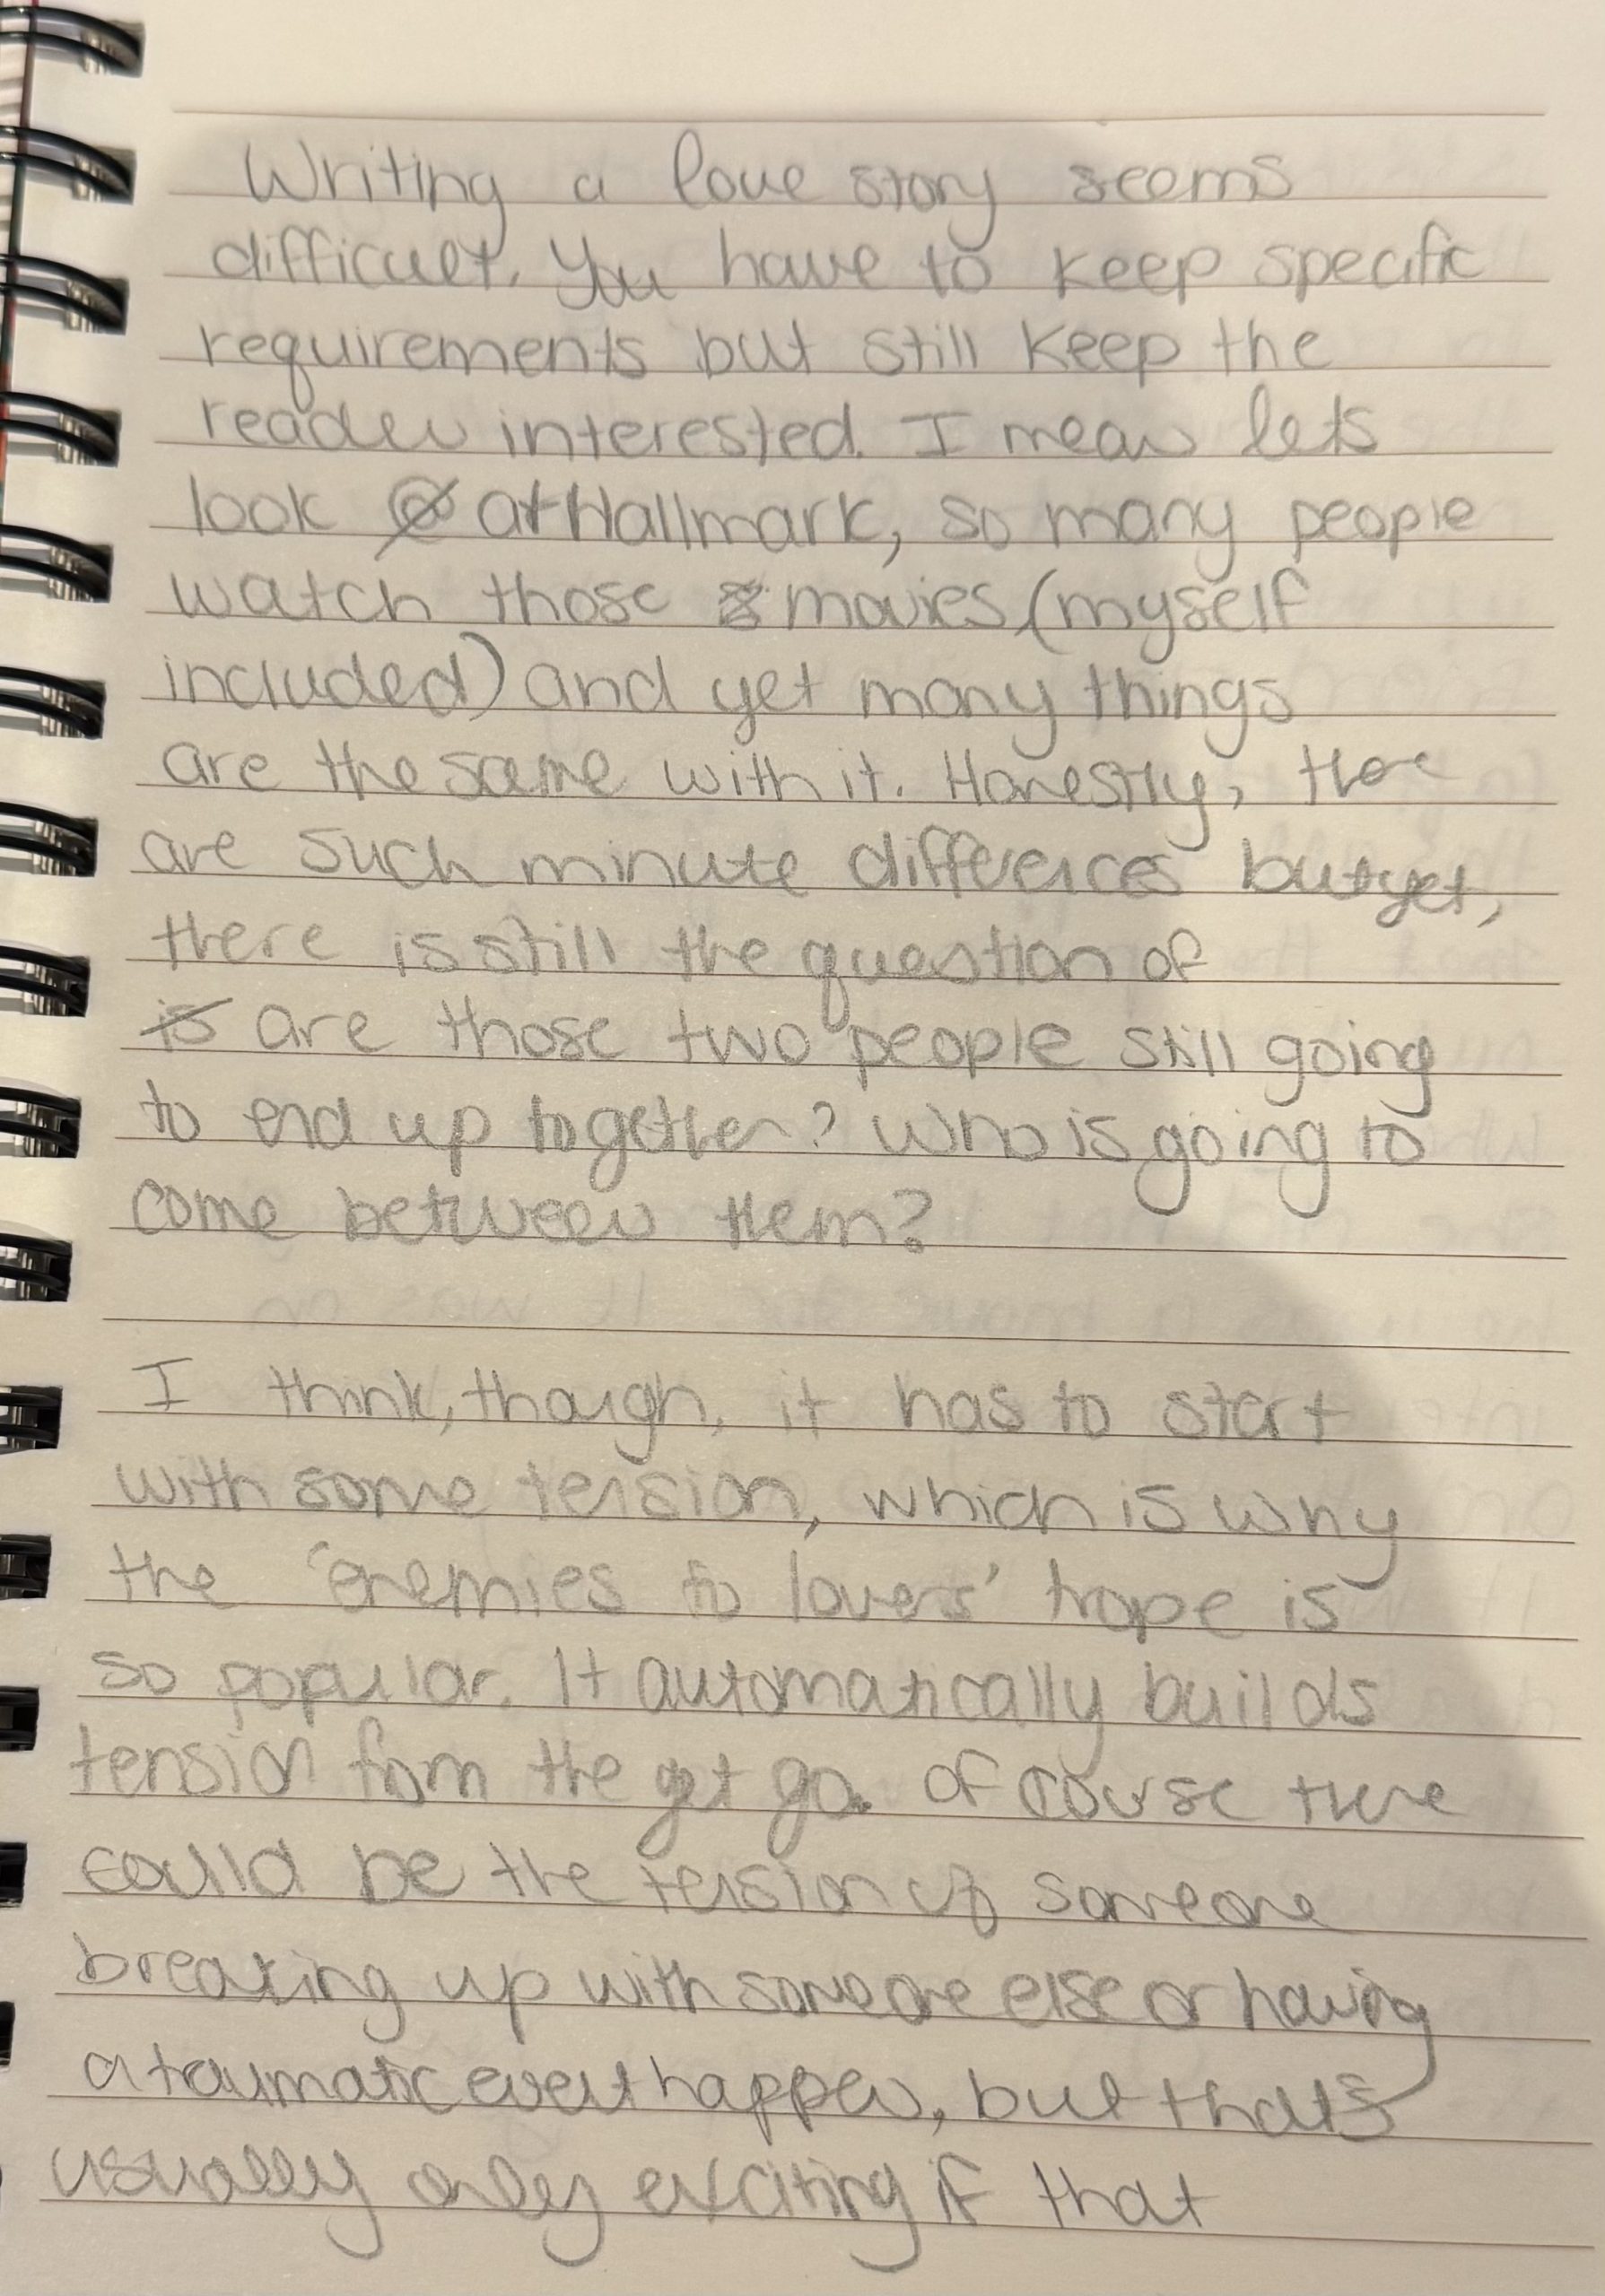 Writing a love story seems
difficult. You have to keep specific
requirements but still keep the
reader interested. I mean lets
look @ at Hallmark, so many people
watch those movies (myself
included) and yet many things
are the same with it. Honestly, there
are such minute differences but yet,
there is still the question of
is are those two people still going
to end up together? Who is going to
come between them?
I think, though, it has to start
with some tension, which is why
the 'enemies to lovers' trope is
so popular. It automatically builds
tension from the get go. Of course there
could be the tension of someone
breaking up with someone else or having
a traumatic event happen, but that's
usually only exciting if that